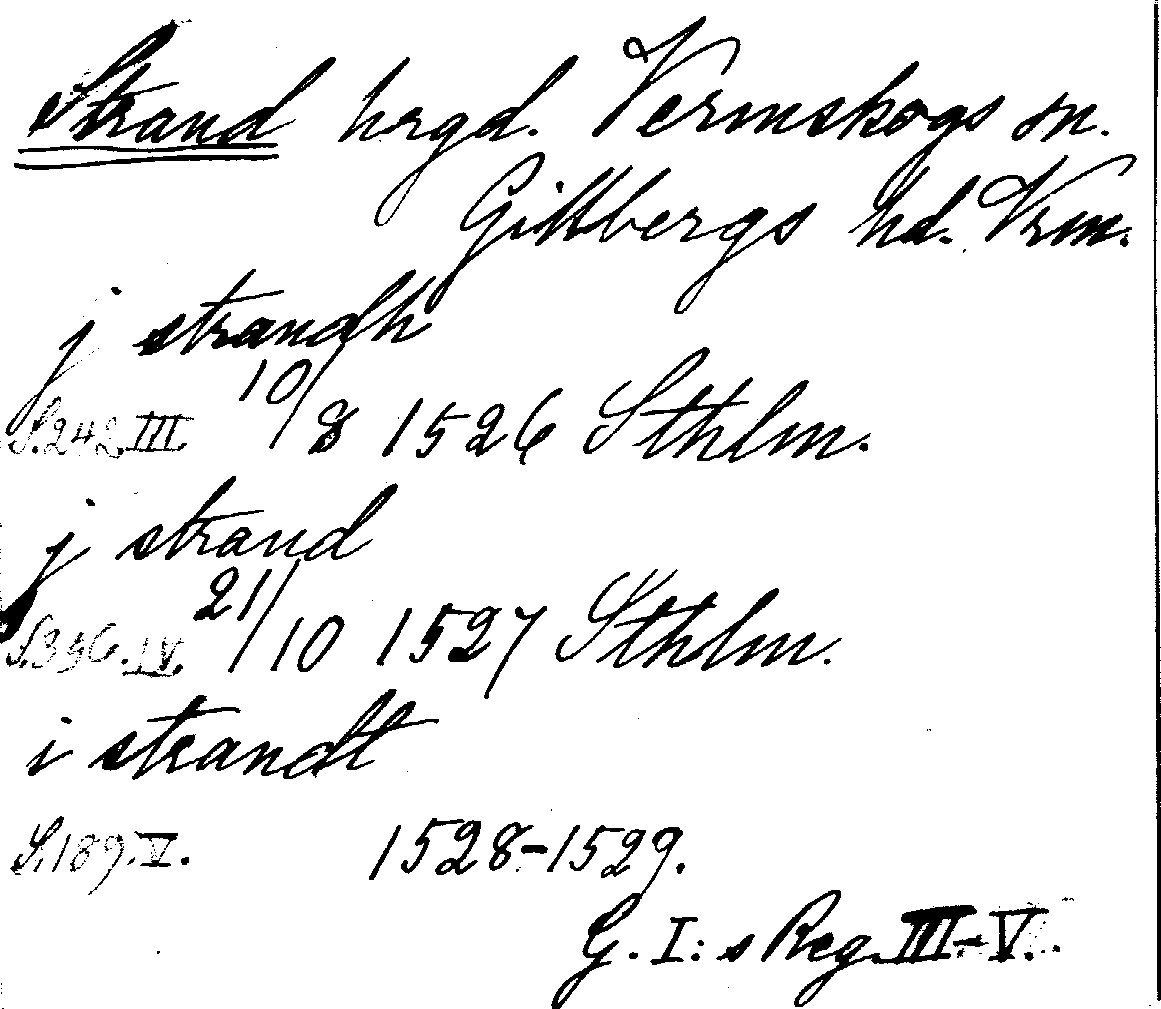 Strand hrgd. Vermskogs sn.
Gillbergs hd. Vrm.
j strandh
S.242.III 10/8 1526 Sthlm.
j strand
S.356.IV. 21/10 1527 Sthlm.
i strandt
S.189.V. 1528-1529.
G. I:s Reg. III-V.